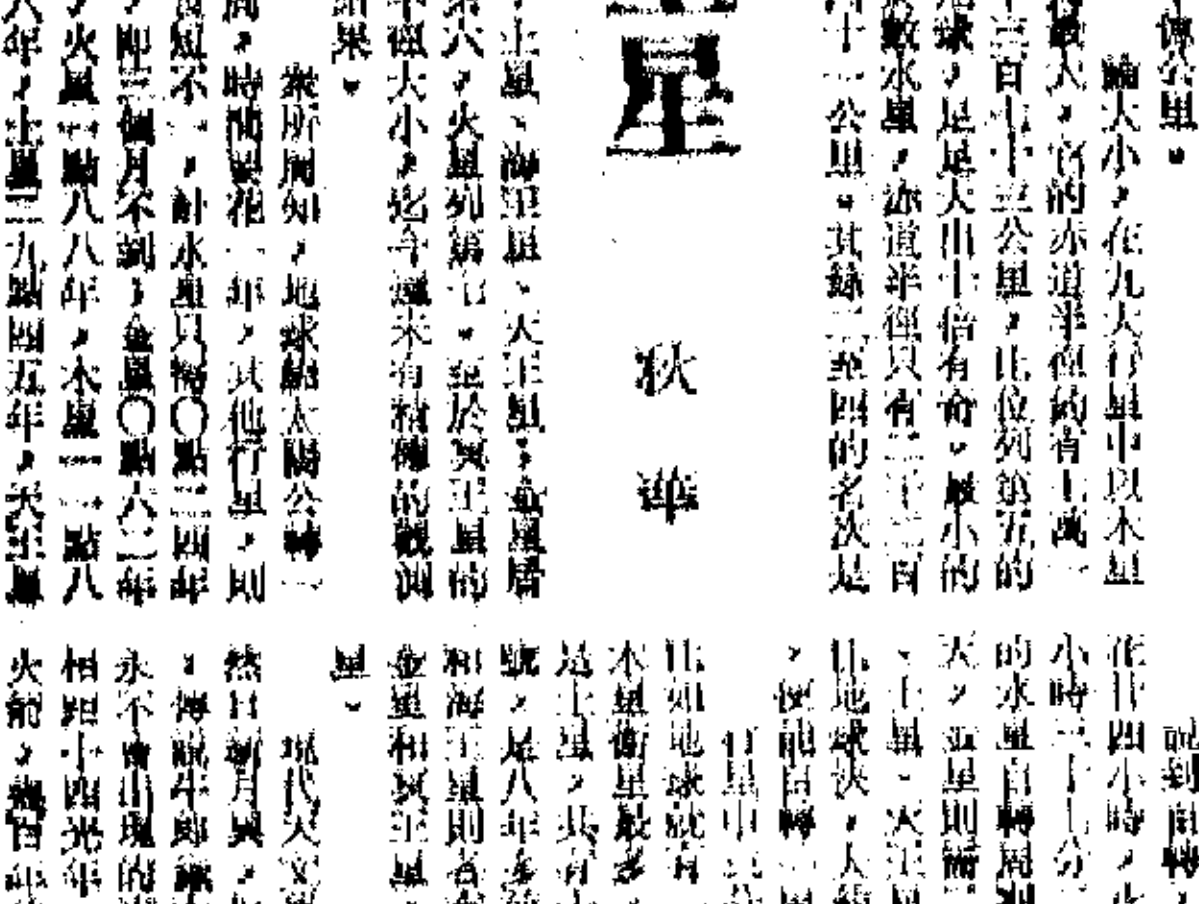 公里。
論大小，在九大行星中以木星
最大，它的赤道半徑約有七萬一
千三百七十三公里，比位列第五的
地球，足足大出十倍有奇。最小的
數水星，赤道半徑只有二千三百
四十一公里。其餘二至四的名次是
星
秋華
土星、海王星、天王星，金星居
第六，火星列第七。至於冥王星的
半徑大小，迄今還未有精確的觀測
結果。
衆所周知，地球繞太陽公轉一
周，時間要花一年，其他行星，則
長短不一，計水星只需〇點二四年
，即三個月不到，金星〇點六二年
，火星一點八八年，木星一一點八
六年，土星二九點四五年，天王星
說到自轉，
花廿四小時，火
小時三十七分
的水星自轉周期
天，金星則需
、土星、天王星
比地球快，
，便能自轉一周
行星中
比如地球就有
木星衛星最多，
是土星，共有十
號，是八年多
和海王星則各
金星和冥王星，
星。
現代天文
然日新月異，
，傳說牛郎織
永不會出現的
相距十四光年
火箭，百年